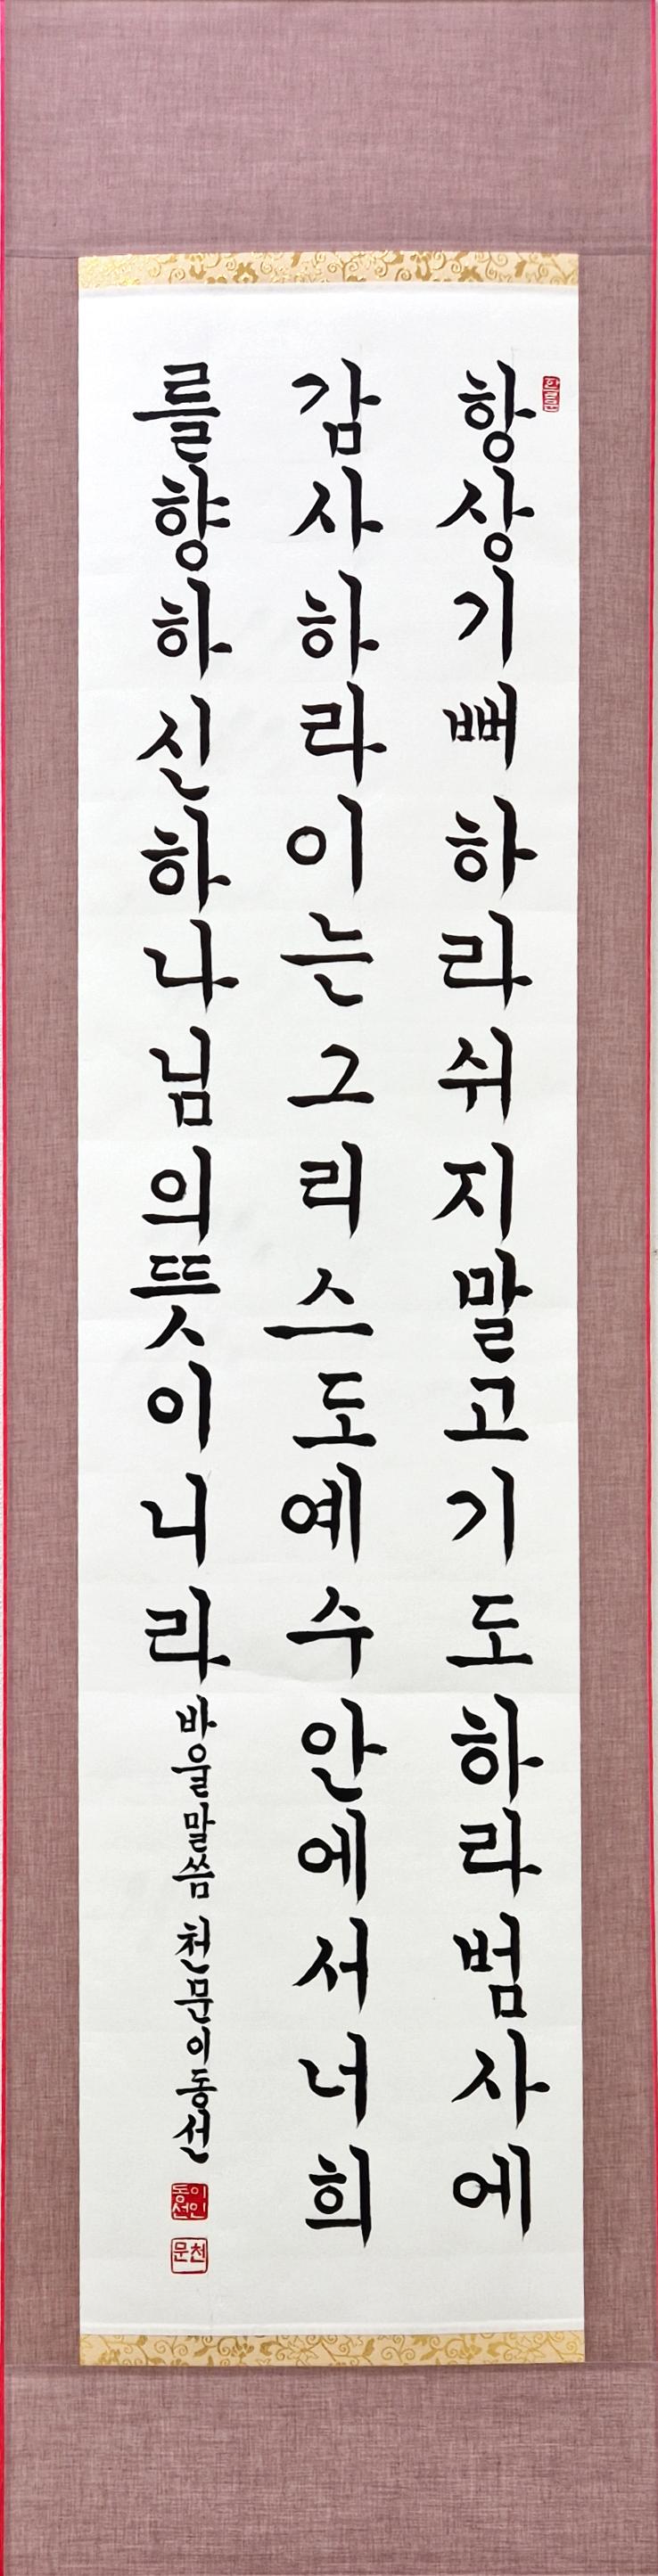 항상기뻐하라쉬지말고기도하라범사에
감사하라이는그리스도예수안에서너희
를향하신하나님의뜻이니라
바울말씀 천문이동선
이인동선
천문